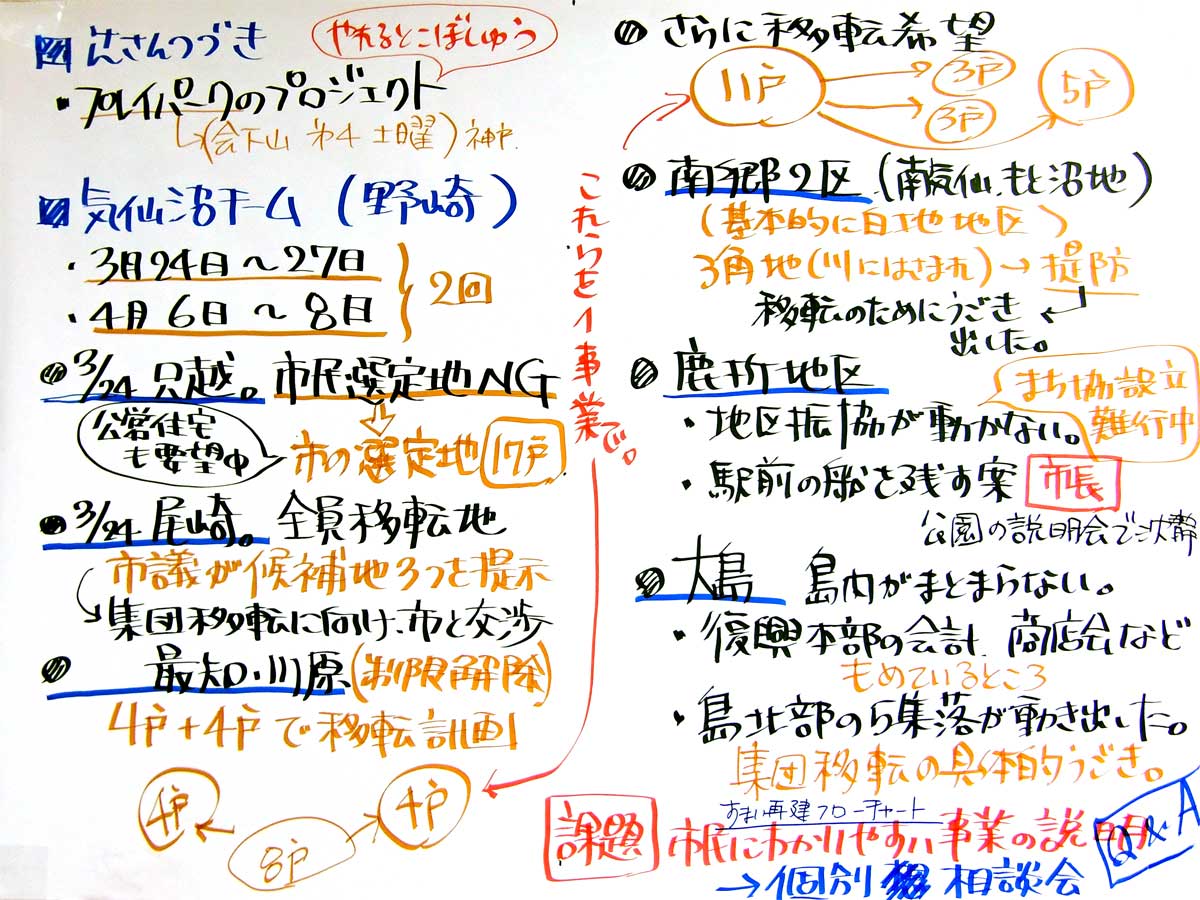 辻さんつづき
やれるとこぼしゅう
・プレイパークのプロジェクト
(会下山 第4土曜) 神戸
気仙沼チーム (野崎)
・3月24日〜27日
・4月6日〜8日
2回
3/24 只越。市民選定地NG
公営住宅
も要望中
市の選定地 17戸
3/24 尾崎。全員移転地
市議が候補地3つを提示
集団移転に向け、市と交渉
最知・川原 (制限解除)
4戸+4戸で移転計画
4戸
8戸
4戸
これらを1事業で。
さらに移転希望
11戸
3戸
3戸
5戸
南郷2区 (南気仙、もと沼地)
(基本的に白地地区)
3角地(川にはさまれ)→堤防
移転のためにうごき
出した。
鹿折地区
まち協設立
難行中
・地区振協が動かない。
・駅前の船を残す案 市長
公園の説明会で沈静
大島 島内がまとまらない。
・復興本部の会計、商店会など
もめているところ
・島北部の5集落が動き出した。
集団移転の具体的うごき。
すまい再建フローチャート
課題 市民にわかりやすい事業の説明
Q&A
→個別 相談会